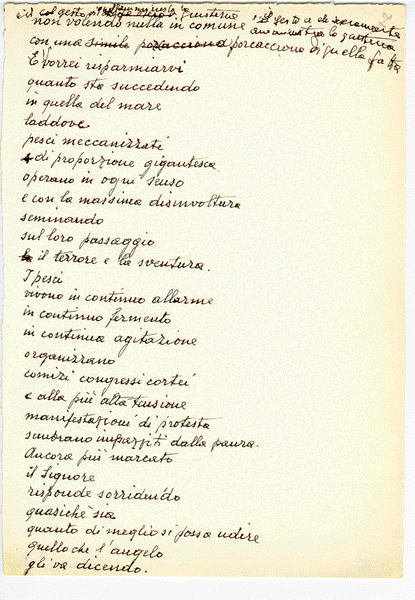 non volendo nulla in comune
con una porcacciona di quella fatta
E vorrei risparmiarvi
quanto sta succedendo
in quella del mare
laddove
pesci meccanizzati
di proporzione gigantesca
operano in ogni senso
e con la massima disinvoltura
seminando
sul loro passaggio
il terrore e la sventura.
I pesci
vivono in continuo allarme
in continuo fermento
in continua agitazione
organizzano
comizi congressi cortei
e alla più alta tensione
manifestazioni di protesta
sembrano impazziti dalla paura.
Ancora più marcato
il Signore
risponde sorridendo
quasiché sia
quanto di meglio si possa udire
quello che l'angelo
gli va dicendo.